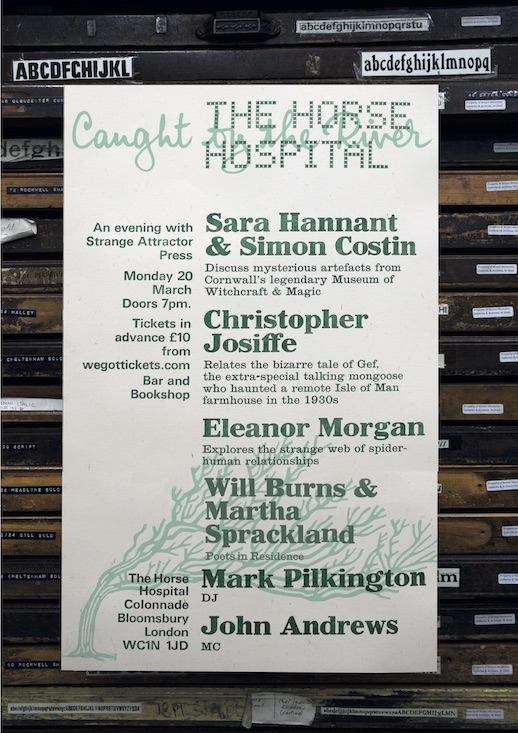 abcdefghijklmnopqrstu
ABCDFCHIJKL
abcdefghijklmnopq
Caught by the River
THE HORSE
HOSPITAL
An evening with
Strange Attractor
Press
Monday 20
March
Doors 7pm.
Tickets in
advance £10
from
wegottickets.com
Bar and
Bookshop
Sara Hannant
& Simon Costin
Discuss mysterious artefacts from
Cornwall's legendary Museum of
Witchcraft & Magic
Christopher
Josiffe
Relates the bizarre tale of Gef,
the extra-special talking mongoose
who haunted a remote Isle of Man
farmhouse in the 1930s
Eleanor Morgan
Explores the strange web of spider-
human relationships
Will Burns &
Martha
Sprackland
Poets in Residence
Mark Pilkington
DJ
John Andrews
MC
The Horse
Hospital
Colonnade
Bloomsbury
London
WC1N 1JD